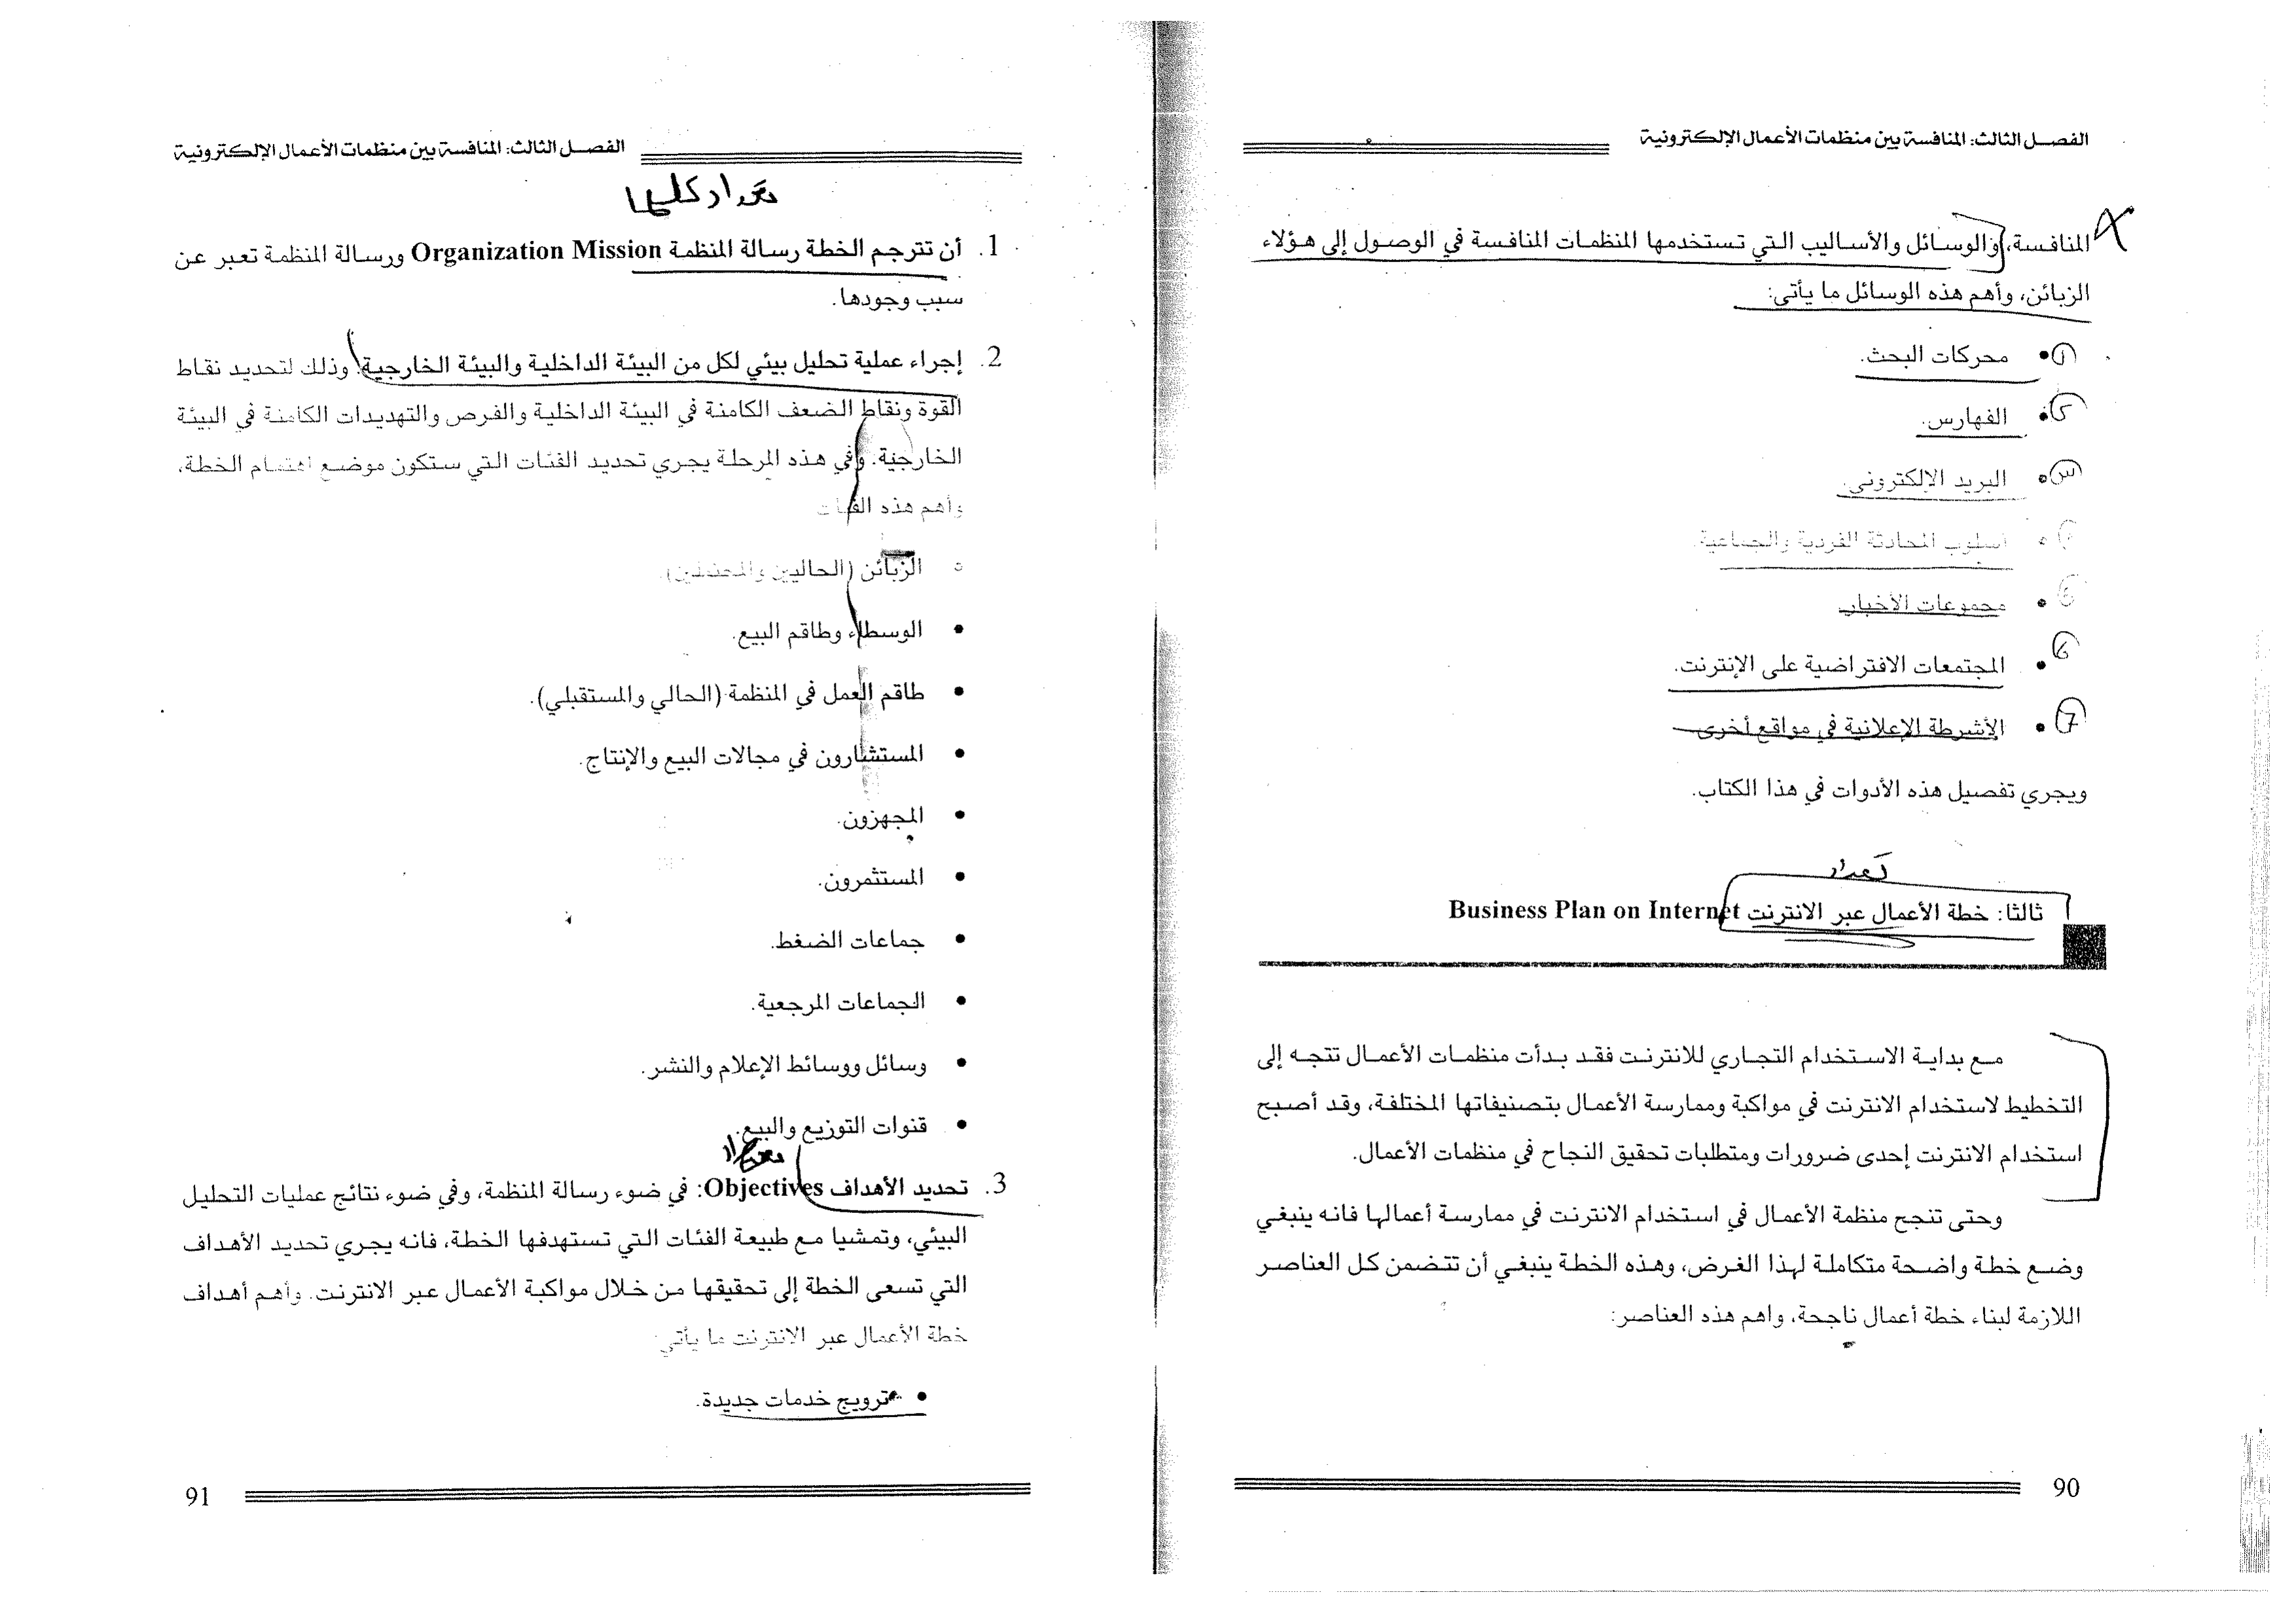 الفصل الثالث: المنافسة بين منظمات الأعمال الإلكترونية
المنافسة، والوسائل والأساليب التي تستخدمها المنظمات المنافسة في الوصول إلى هؤلاء
الزبائن، وأهم هذه الوسائل ما يأتي:
① • محركات البحث.
② • الفهارس.
③ • البريد الإلكتروني.
• أسلوب المحادثة الفردية والجماعية.
⑤ • مجموعات الأخبار.
⑥ • المجتمعات الافتراضية على الإنترنت.
⑦ • الأشرطة الإعلانية في مواقع أخرى.
ويجري تفصيل هذه الأدوات في هذا الكتاب.
تعداد
ثالثا: خطة الأعمال عبر الانترنت Business Plan on Internet
مع بداية الاستخدام التجاري للانترنت فقد بدأت منظمات الأعمال تتجه إلى
التخطيط لاستخدام الانترنت في مواكبة وممارسة الأعمال بتصنيفاتها المختلفة، وقد أصبح
استخدام الانترنت إحدى ضرورات ومتطلبات تحقيق النجاح في منظمات الأعمال.
وحتى تنجح منظمة الأعمال في استخدام الانترنت في ممارسة أعمالها فانه ينبغي
وضع خطة واضحة متكاملة لهذا الغرض، وهذه الخطة ينبغي أن تتضمن كل العناصر
اللازمة لبناء خطة أعمال ناجحة، واهم هذه العناصر:
90
الفصل الثالث: المنافسة بين منظمات الأعمال الإلكترونية
تعداد كلها
1. أن تترجم الخطة رسالة المنظمة Organization Mission ورسالة المنظمة تعبر عن
سبب وجودها.
2. إجراء عملية تحليل بيئي لكل من البيئة الداخلية والبيئة الخارجية، وذلك لتحديد نقاط
القوة ونقاط الضعف الكامنة في البيئة الداخلية والفرص والتهديدات الكامنة في البيئة
الخارجية. وفي هذه المرحلة يجري تحديد الفئات التي ستكون موضع اهتمام الخطة،
وأهم هذه الفئات
• الزبائن (الحاليين والمحتملين).
• الوسطاء وطاقم البيع.
• طاقم العمل في المنظمة (الحالي والمستقبلي).
• المستشارون في مجالات البيع والإنتاج.
• المجهزون.
• المستثمرون.
• جماعات الضغط.
• الجماعات المرجعية.
• وسائل ووسائط الإعلام والنشر.
• قنوات التوزيع والبيع.
تعداد
3. تحديد الأهداف Objectives: في ضوء رسالة المنظمة، وفي ضوء نتائج عمليات التحليل
البيئي، وتمشيا مع طبيعة الفئات التي تستهدفها الخطة، فانه يجري تحديد الأهداف
التي تسعى الخطة إلى تحقيقها من خلال مواكبة الأعمال عبر الانترنت. وأهم أهداف
خطة الأعمال عبر الانترنت ما يأتي:
• ترويج خدمات جديدة.
91